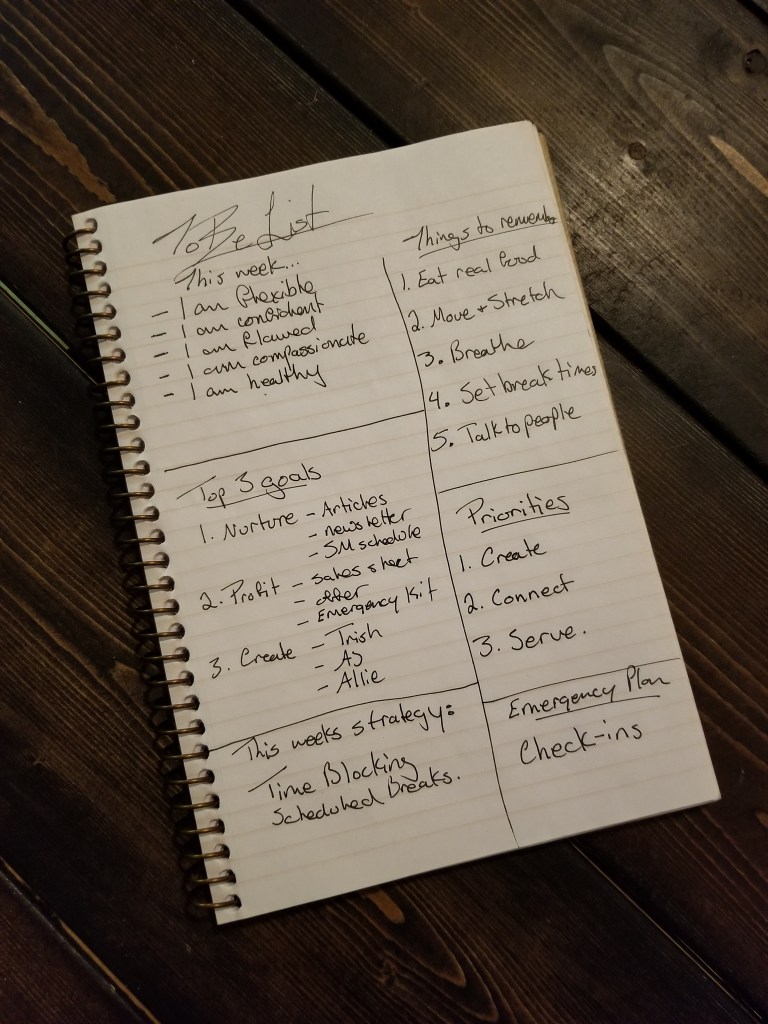 To Be List
This week...
- I am flexible
- I am confident
- I am flawed
- I am compassionate
- I am healthy
Things to remember
1. Eat real food
2. Move + Stretch
3. Breathe
4. Set break times
5. Talk to people
Top 3 goals
1. Nurture - Articles
- newsletter
- SM schedule
2. Profit - sales sheet
- offer
- Emergency Kit
3. Create - Trish
- AJ
- Allie
Priorities
1. Create
2. Connect
3. Serve.
This weeks strategy:
Time Blocking
Scheduled Breaks.
Emergency Plan
Check-ins